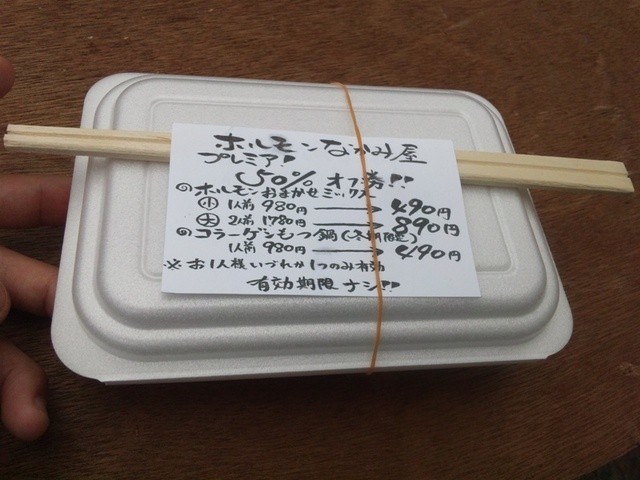 ホルモンなかみ屋
プレミア!
50%オフ券!!
◎ホルモンおまかせミックス
小 1人前 980円 → 490円
大 2人前 1780円 → 890円
◎コラーゲンもつ鍋(冬期限定)
1人前 980円 → 490円
※お1人様いづれか1つのみ有効
有効期限ナシ!!